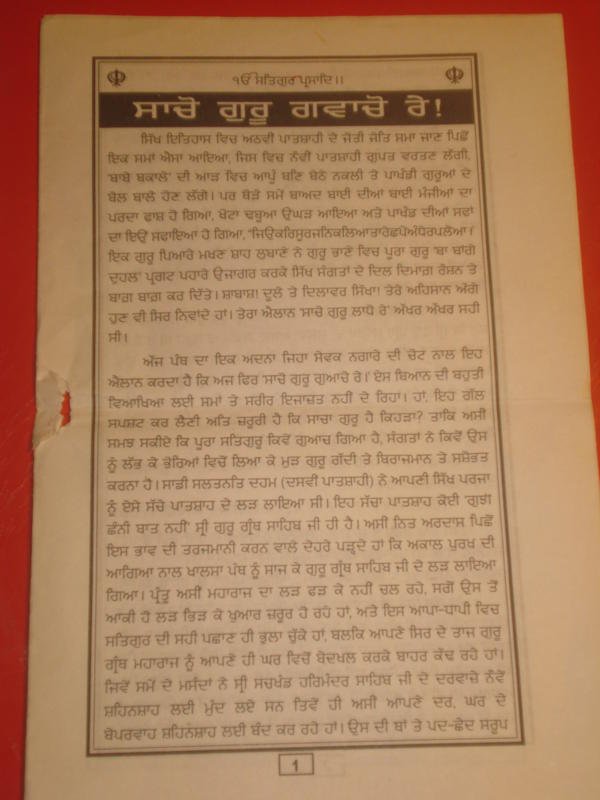 ੴ ਸਤਿਗੁਰ ਪ੍ਰਸਾਦਿ।।
ਸਾਚੋ ਗੁਰੂ ਗਵਾਚੋ ਰੇ!
ਸਿੱਖ ਇਤਿਹਾਸ ਵਿਚ ਅਠਵੀ ਪਾਤਸ਼ਾਹੀ ਦੇ ਜੋਤੀ ਜੋਤਿ ਸਮਾ ਜਾਣ ਪਿਛੋਂ
ਇਕ ਸਮਾਂ ਐਸਾ ਆਇਆ, ਜਿਸ ਵਿਚ ਨੌਵੀਂ ਪਾਤਸ਼ਾਹੀ ਗੁਪਤ ਵਰਤਣ ਲੱਗੀ,
'ਬਾਬੇ ਬਕਾਲੇ' ਦੀ ਆੜ ਵਿਚ ਆਪੂੰ ਬਣਿ ਬੈਠੇ ਨਕਲੀ ਤੇ ਪਾਖੰਡੀ ਗੁਰੂਆਂ ਦੇ
ਬੋਲ ਬਾਲੇ ਹੋਣ ਲੱਗੇ। ਪਰ ਥੋੜੇ ਸਮੇਂ ਬਾਅਦ ਬਾਈ ਦੀਆਂ ਬਾਈ ਮੰਜੀਆਂ ਦਾ
ਪਰਦਾ ਫਾਸ਼ ਹੋ ਗਿਆ, ਖੋਟਾ ਢਬੂਆ ਉਘੜ ਆਇਆ ਅਤੇ ਪਾਖੰਡ ਦੀਆਂ ਸਫਾਂ
ਦਾ ਇਉਂ ਸਫਾਇਆ ਹੋ ਗਿਆ, "ਜਿਉਂਕਰਿਸੂਰਜਨਿਕਲਿਆਤਾਰੇਛਪੇਅੰਧੇਰਪਲੋਆ।"
ਇਕ ਗੁਰੂ ਪਿਆਰੇ ਮਖਣ ਸ਼ਾਹ ਲੁਬਾਣੇ ਨੇ ਗੁਰੂ ਭਾਣੇ ਵਿਚ ਪੂਰਾ ਗੁਰੂ 'ਬਾ ਬਾਂਗੇ
ਦੁਹਲ' ਪ੍ਰਗਟ ਪਹਾਰੇ ਉਜਾਗਰ ਕਰਕੇ ਸਿੱਖ ਸੰਗਤਾਂ ਦੇ ਦਿਲ ਦਿਮਾਗ਼ ਰੋਸ਼ਨ ਤੇ
ਬਾਗ਼ ਬਾਗ਼ ਕਰ ਦਿੱਤੇ। ਸ਼ਾਬਾਸ਼! ਦੂਲੇ ਤੇ ਦਿਲਾਵਰ ਸਿੱਖਾ! ਤੇਰੇ ਅਹਿਸਾਨ ਅੱਗੇ
ਹੁਣ ਵੀ ਸਿਰ ਨਿਵਾਂਦੇ ਹਾਂ। ਤੇਰਾ ਐਲਾਨ 'ਸਾਚੋ ਗੁਰੂ ਲਾਧੋ ਰੇ' ਅੱਖਰ ਅੱਖਰ ਸਹੀ
ਸੀ।
ਅੱਜ ਪੰਥ ਦਾ ਇਕ ਅਦਨਾ ਜਿਹਾ ਸੇਵਕ ਨਗਾਰੇ ਦੀ ਚੋਟ ਨਾਲ ਇਹ
ਐਲਾਨ ਕਰਦਾ ਹੈ ਕਿ ਅਜ ਫਿਰ 'ਸਾਚੋ ਗੁਰੂ ਗੁਆਚੋ ਰੇ।' ਏਸ ਬਿਆਨ ਦੀ ਬਹੁਤੀ
ਵਿਆਖਿਆ ਲਈ ਸਮਾਂ ਤੇ ਸਰੀਰ ਇਜਾਜ਼ਤ ਨਹੀਂ ਦੇ ਰਿਹਾ। ਹਾਂ, ਇਹ ਗੱਲ
ਸਪਸ਼ਟ ਕਰ ਲੈਣੀ ਅਤਿ ਜ਼ਰੂਰੀ ਹੈ ਕਿ ਸਾਚਾ ਗੁਰੂ ਹੈ ਕਿਹੜਾ? ਤਾਕਿ ਅਸੀਂ
ਸਮਝ ਸਕੀਏ ਕਿ ਪੂਰਾ ਸਤਿਗੁਰੂ ਕਿਵੇਂ ਗੁਆਚ ਗਿਆ ਹੈ, ਸੰਗਤਾਂ ਨੇ ਕਿਵੇਂ ਉਸ
ਨੂੰ ਲੱਭ ਕੇ ਭੋਰਿਆਂ ਵਿਚੋਂ ਲਿਆ ਕੇ ਮੁੜ ਗੁਰੂ ਗੱਦੀ ਤੇ ਬਿਰਾਜਮਾਨ ਤੇ ਸਸ਼ੋਭਤ
ਕਰਨਾ ਹੈ। ਸਾਡੀ ਸਲਤਨਤਿ ਦਹਮ (ਦਸਵੀਂ ਪਾਤਸ਼ਾਹੀ) ਨੇ ਆਪਣੀ ਸਿੱਖ ਪਰਜਾ
ਨੂੰ ਏਸੇ ਸੱਚੇ ਪਾਤਸ਼ਾਹ ਦੇ ਲੜ ਲਾਇਆ ਸੀ। ਇਹ ਸੱਚਾ ਪਾਤਸ਼ਾਹ ਕੋਈ 'ਗੁਝੀ
ਛੰਨੀ ਬਾਤ ਨਹੀਂ' ਸ੍ਰੀ ਗੁਰੂ ਗ੍ਰੰਥ ਸਾਹਿਬ ਜੀ ਹੀ ਹੈ। ਅਸੀਂ ਨਿਤ ਅਰਦਾਸ ਪਿਛੋਂ
ਇਸ ਭਾਵ ਦੀ ਤਰਜਮਾਨੀ ਕਰਨ ਵਾਲੇ ਦੋਹਰੇ ਪੜ੍ਹਦੇ ਹਾਂ ਕਿ ਅਕਾਲ ਪੁਰਖ ਦੀ
ਆਗਿਆ ਨਾਲ ਖਾਲਸਾ ਪੰਥ ਨੂੰ ਸਾਜ ਕੇ ਗੁਰੂ ਗ੍ਰੰਥ ਸਾਹਿਬ ਜੀ ਦੇ ਲੜ ਲਾਇਆ
ਗਿਆ। ਪ੍ਰੰਤੂ ਅਸੀਂ ਮਹਾਰਾਜ ਦਾ ਲੜ ਫੜ ਕੇ ਨਹੀਂ ਚਲ ਰਹੇ, ਸਗੋਂ ਉਸ ਤੋਂ
ਆਕੀ ਹੋ ਲੜ ਭਿੜ ਕੇ ਖੁਆਰ ਜ਼ਰੂਰ ਹੋ ਰਹੇ ਹਾਂ, ਅਤੇ ਇਸ ਆਪਾ-ਧਾਪੀ ਵਿਚ
ਸਤਿਗੁਰ ਦੀ ਸਹੀ ਪਛਾਣ ਹੀ ਭੁਲਾ ਚੁੱਕੇ ਹਾਂ, ਬਲਕਿ ਆਪਣੇ ਸਿਰ ਦੇ ਤਾਜ ਗੁਰੂ
ਗ੍ਰੰਥ ਮਹਾਰਾਜ ਨੂੰ ਆਪਣੇ ਹੀ ਘਰ ਵਿਚੋਂ ਬੇਦਖਲ ਕਰਕੇ ਬਾਹਰ ਕੱਢ ਰਹੇ ਹਾਂ।
ਜਿਵੇਂ ਸਮੇਂ ਦੇ ਮਸੰਦਾਂ ਨੇ ਸ੍ਰੀ ਸਚਖੰਡ ਹਰਿਮੰਦਰ ਸਾਹਿਬ ਜੀ ਦੇ ਦਰਵਾਜ਼ੇ ਨੌਵੇਂ
ਸ਼ਹਿਨਸ਼ਾਹ ਲਈ ਮੁੰਦ ਲਏ ਸਨ ਤਿਵੇਂ ਹੀ ਅਸੀਂ ਆਪਣੇ ਦਰ, ਘਰ ਦੇ
ਬੇਪਰਵਾਹ ਸ਼ਹਿਨਸ਼ਾਹ ਲਈ ਬੰਦ ਕਰ ਰਹੇ ਹਾਂ। ਉਸ ਦੀ ਥਾਂ ਤੇ ਪਦ-ਛੇਦ ਸਰੂਪ
1